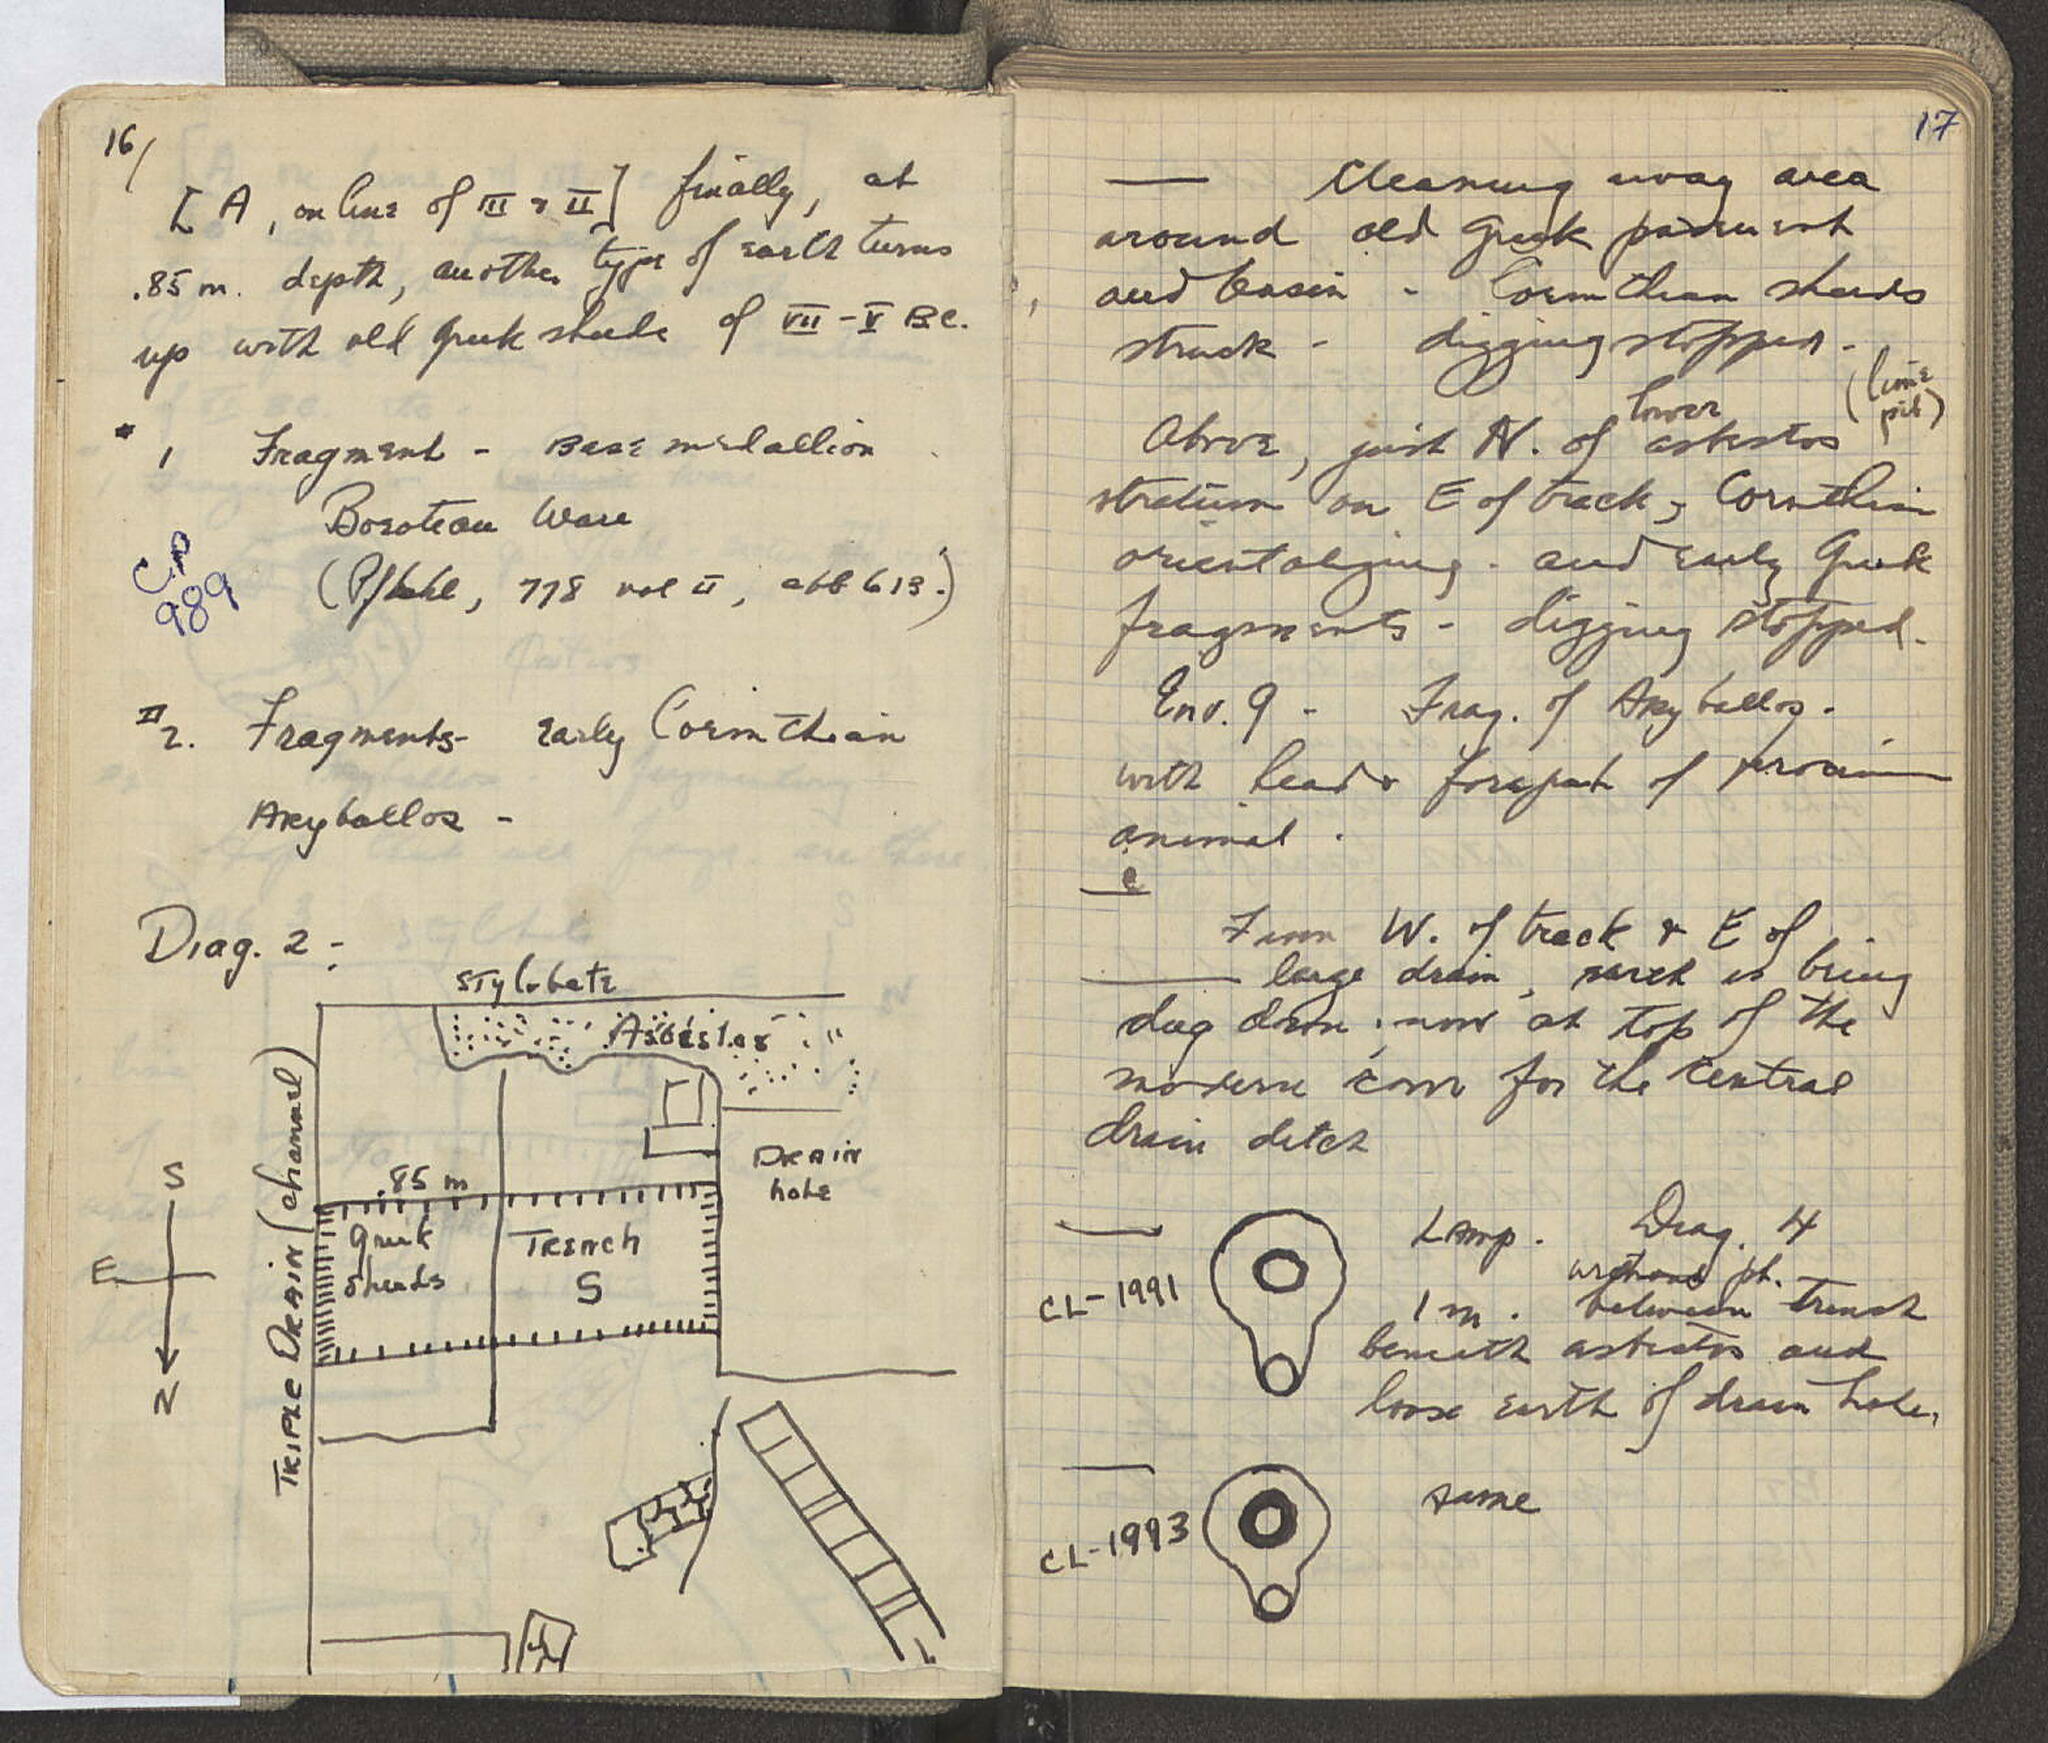 16/
[A, on line of III & II] finally, at
.85 m. depth, another type of earth turns
up with old Greek sherds of VII-V B.C.
1 Fragment - Base medallion
Boeotian Ware
(Pfuhl, 778 vol II, abb 613.)
CP
989
2. Fragments- early Corinthian
Aryballos -
Diag. 2 -
stylobate
Asbestos
TRIPLE DRAIN (channel)
DRAIN
hole
.85 m
Greek
sherds
Trench
S
S
E
N
17
Cleaning away area
around old Greek pavement
and basin - Corinthian sherds
struck - digging stopped.
(lime
pit)
Above, just N. of lower asbestos
stratum on E of track, Corinthian
orientalizing - and early Greek
fragments - digging stopped.
Env. 9 - Frag. of Aryballos -
with head & forepart of
animal.
From W. of track & E of
large drain, is being
dug down, now at top of the
modern for the central
drain ditch
CL-1991
Lamp. Diag. 4
1 m. between trench
beneath asbestos and
loose earth of drain hole.
CL-1993
same